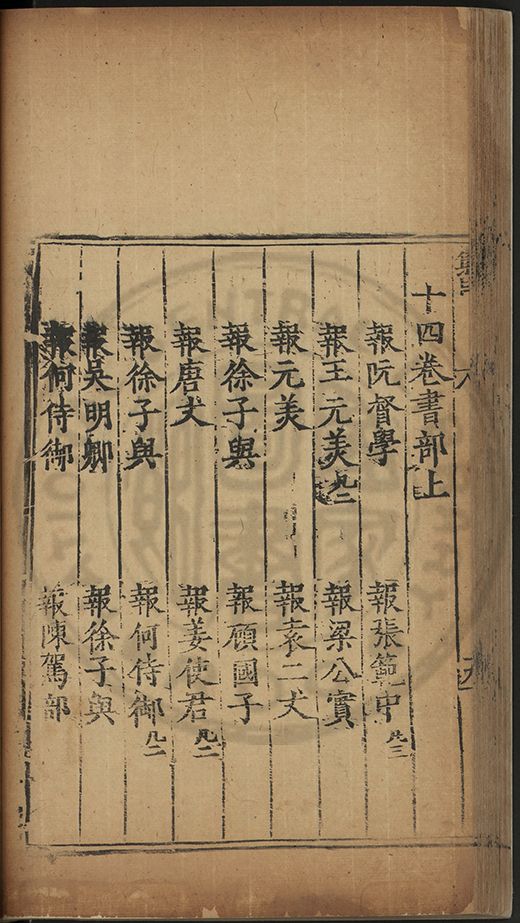 十四卷書部上
報阮督學 報張範中凡三
報王元美凡二 報梁公實
報元美 報袁二丈
報徐子與 報顧國子
報唐丈 報姜使君凡二
報徐子與 報何侍御凡二
報吳明卿 報徐子與
報何侍御 報陳駕部